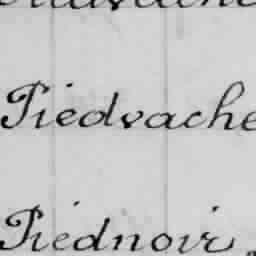 Piedvache
Piednoir